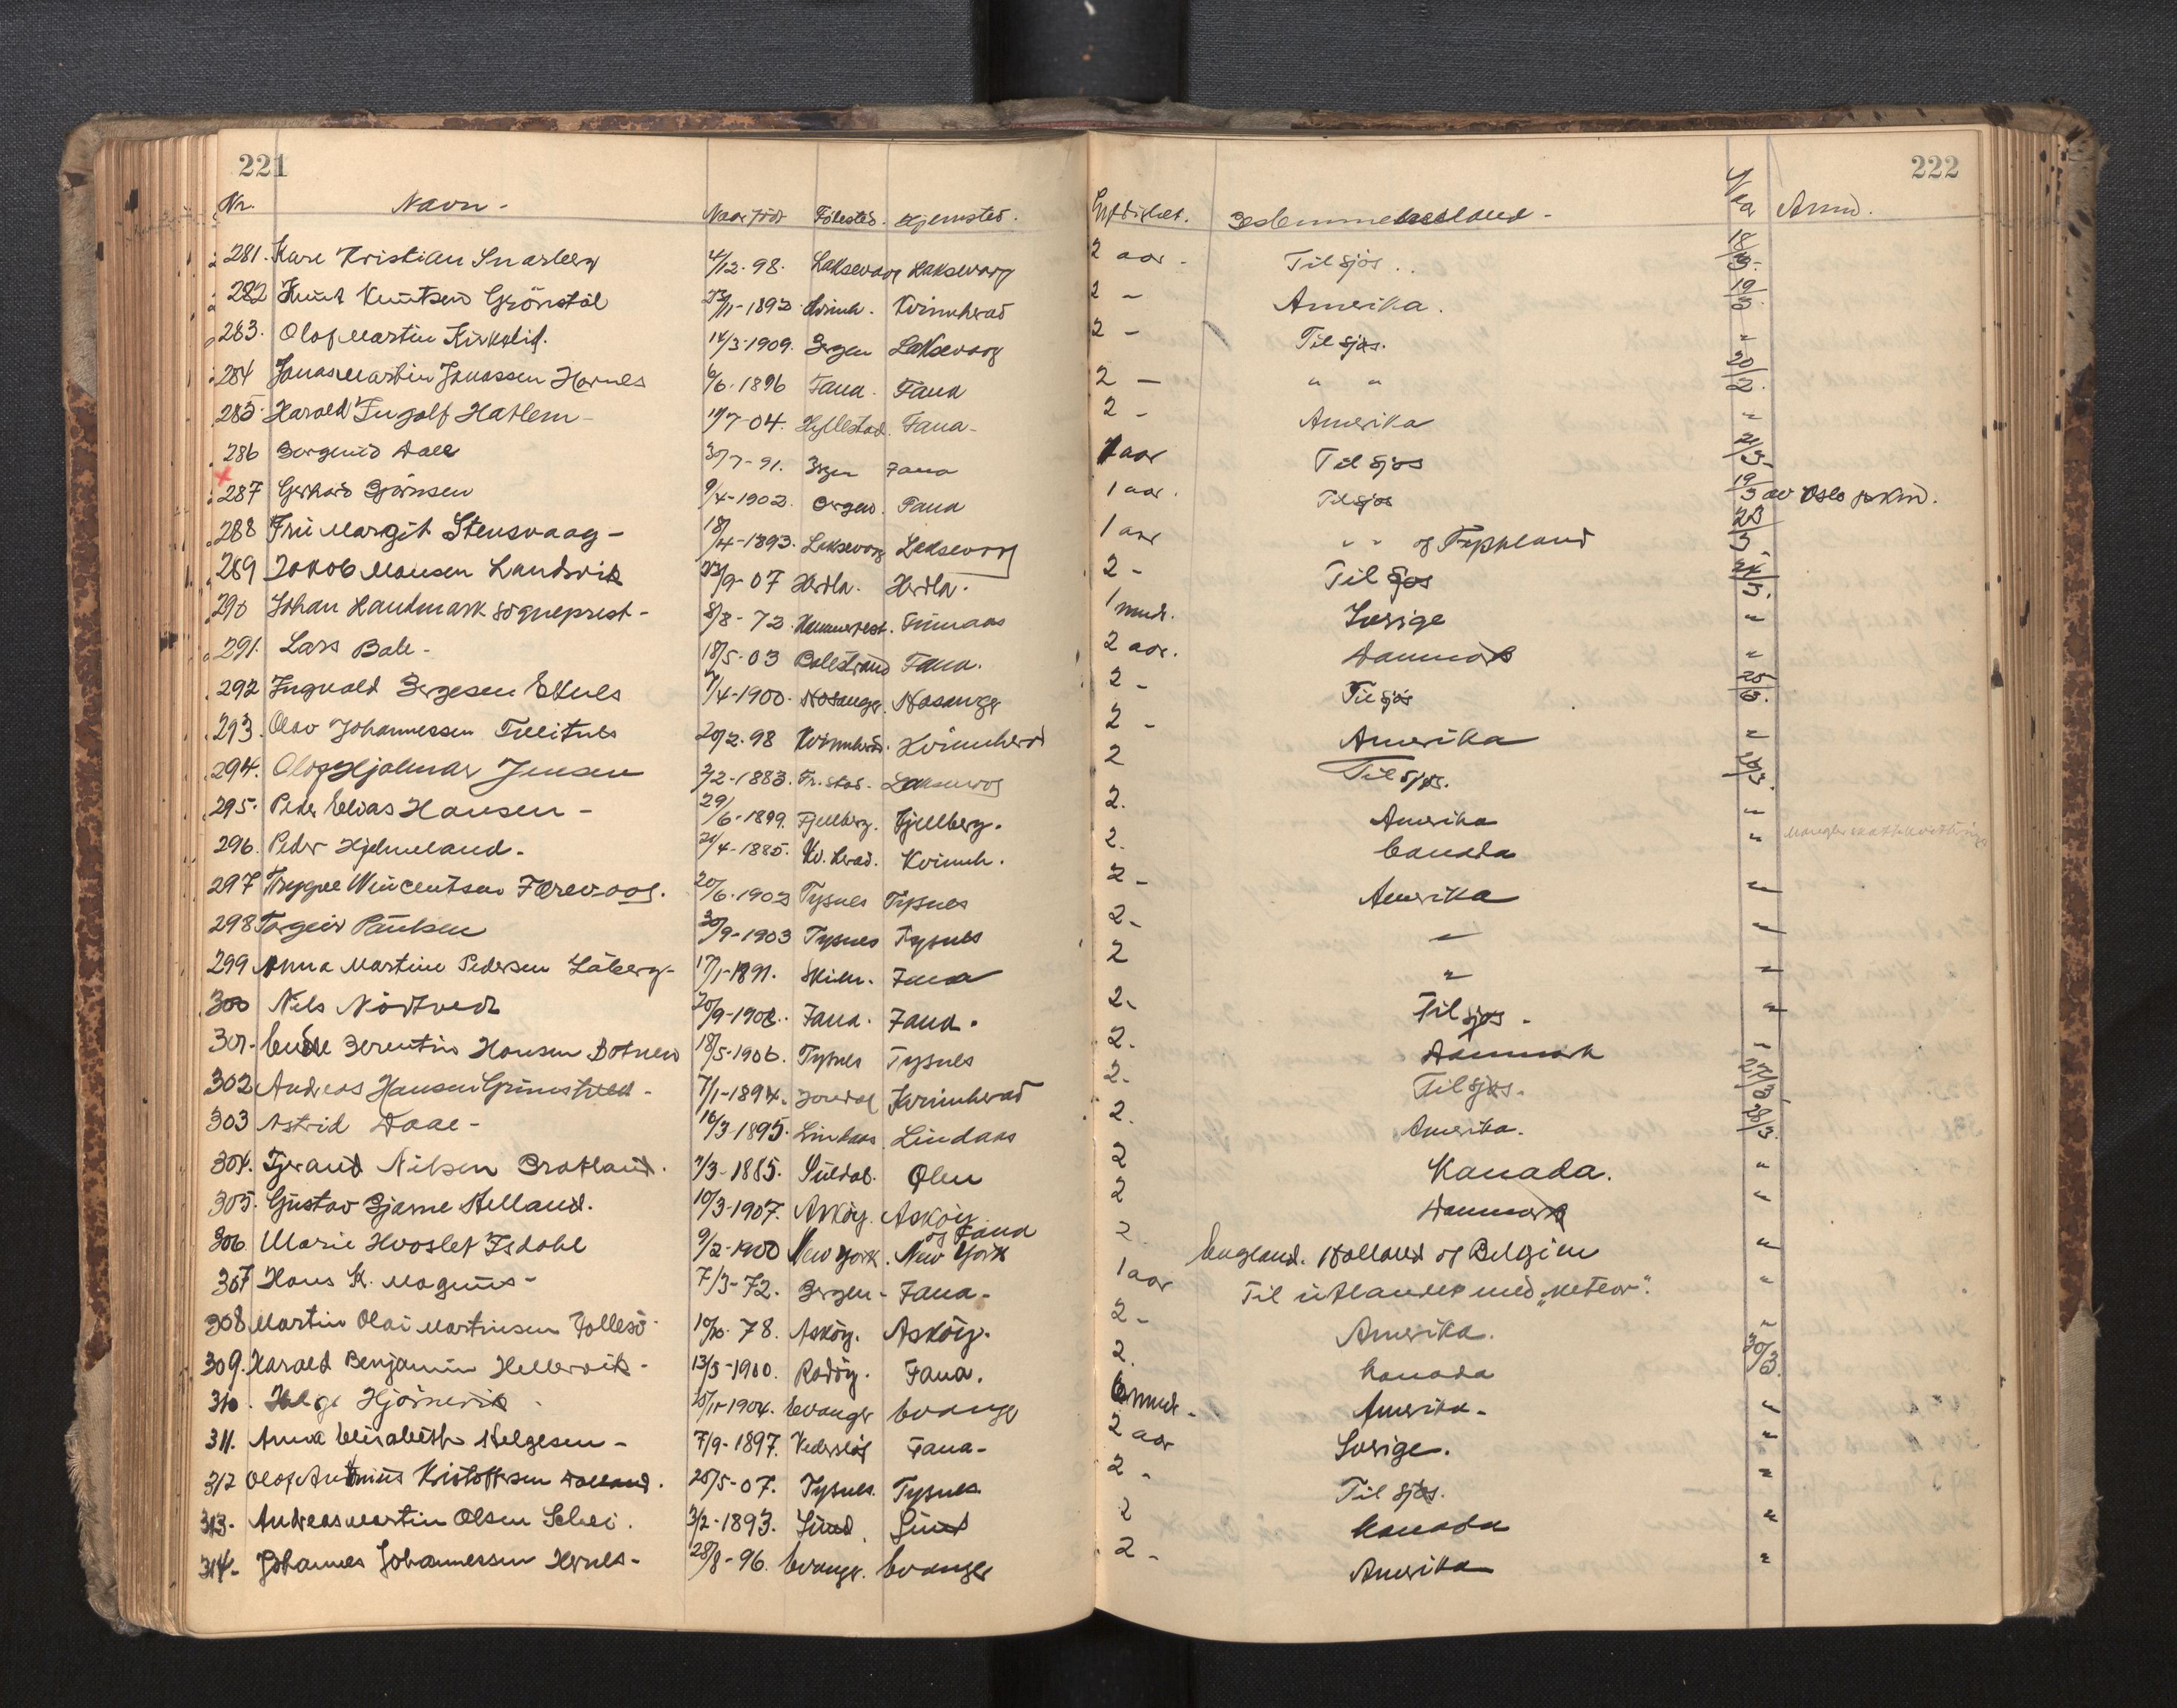 221
222
Nr. Navn - Naar född Födested. Hjemsted. Gyldighet. Bestemmelsesland - Naar Anm.
281. Kare Kristian Snarberg 4/12-98. Laksevaag Laksevaag 2 aar - Til sjøs.. 18/3.
282 Knut Knutsen Grönstöl 23/11-1892. Kvinnh. Kvinnherad 2 - Amerika. 19/3.
283. Olaf Martin Kirkelid. 14/3-1909. Bergen Laksevaag 2 - Til sjøs. "
284 Jonas Martin Jonassen Hornes 6/6-1896 Fana. Fana 2 - " " 20/3.
285. Harald Ingolf Hatlem - 19/7-04. Hyllestad. Fana - 2 - Amerika "
286 Bergend Dale 30/7-91. Bergen Fana 1 aar Til sjøs 21/3-
287 Gerhard Björnsen 9/4-1902. Bergen. Fana 1 aar. Til sjøs 19/3 av Oslo pkm.
288 Fru Margit Stensvaag - 18/4-1893. Laksevaag Laksevaag 1 aar " " og Tyskland 23/3
289 Jakob Monsen Landsvik 23/9-07 Herdla. Herdla. 2 - Til sjøs 24/3.
290 Johan Handmark sogneprest - 8/8-72. Hammerfest. Finnaas 1 mnd. Sverige "
291. Lars Bale - 18/5-03 Balestrand Fana. 2 aar. Danmark "
292 Ingvald Bergesen Eknes 7/4-1900. Hosanger. Hosanger 2 - Til sjøs 25/3.
293. Olav Johannessen Tveitnes 20/2-98 Kvinnherad. Kvinnherad 2 - Amerika "
294. Olaf Hjalmar Jensen 3/2-1883. Fr.stad. Laksevaag 2 Til sjøs. 26/3.
295. Peder Elias Hansen - 29/6-1899. Fjellberg. Fjellberg. 2. Amerika "
296. Peder Hjelmeland. 21/4-1885. Kv.herad. Kvinnh. 2. Canada " Mangler skattekvittering
297 Trygve Wincentsen Færevaag. 20/6-1902 Tysnes Tysnes 2 - Amerika "
298 Torgeir Paulsen 30/9-1903 Tysnes Tysnes 2 - " "
299 Anna Martine Pedersen Låberg - 17/1-1891. Skien. Fana 2 " "
300 Nils Nordtvedt 20/9-1908. Fana. Fana. 2 - Til sjøs. "
301. Endre Berentin Hansen Botnen 18/5-1906. Tysnes Tysnes 2. Danmark "
302 Andreas Hansen Grimstveit - 7/1-1894. Jondal Kvinnherad 2. Til sjøs. 27/3
303 Astrid Daae - 16/3-1895. Lindaas. Lindaas 2. Amerika. 28/3.
304. Tjerand Nilsen Bratland. 7/3-1885. Suldal. Ølen 2 Kanada. "
305. Gustav Bjarne Helland. 10/3-1907. Asköy. Asköy 2 Danmark "
306 Marie Hvoslef Isdahl 9/2-1900 New York. New York og Fana 2 England. Holland og Belgien "
307 Hans K. Magnus - 7/3-72. Bergen - Fana - 1 aar Til utlandet med "Meteor". "
308 Martin Olai Martinsen Follesö 10/10-78. Asköy. Asköy. 2 - Amerika. "
309. Harald Benjamin Hellesvik - 13/5-1900. Radöy. Fana. 2. Kanada 30/3.
310. Helge Hjörnevik - 15/11-1904. Evanger Evanger 6 mnd. - Amerika - "
311. Anna Elisabeth Helgesen - 7/9-1897. Vederslöf Fana - 2 aar Sverige. "
312 Olaf Antonius Kristoffersen Dalland. 25/5-07. Tysnes. Tysnes 2 - Til sjøs. "
313. Andreas Martin Olsen Selvei. 3/2-1893. Sund. Sund 2 Kanada "
314. Johannes Johannessen Hernes - 28/8-96. Evanger. Evanger 2 - Amerika "